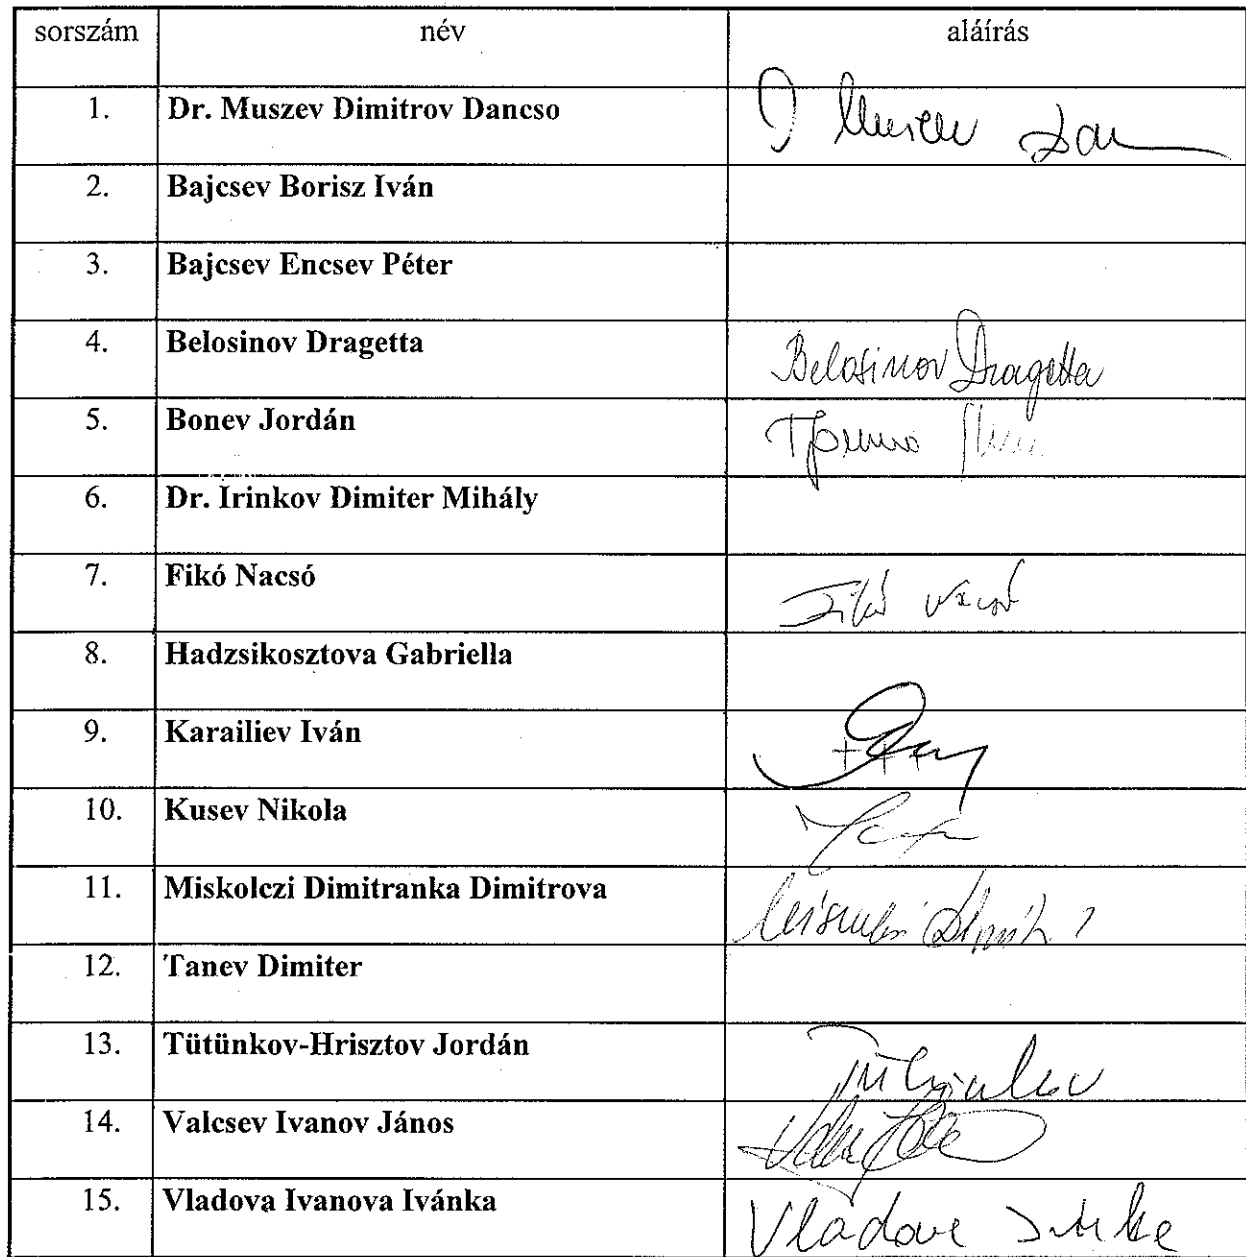 sorszám név aláírás
1. Dr. Muszev Dimitrov Dancso
2. Bajcsev Borisz Iván
3. Bajcsev Encsev Péter
4. Belosinov Dragetta Belosinov Dragetta
5. Bonev Jordán
6. Dr. Irinkov Dimiter Mihály
7. Fikó Nacsó Fikó Nacsó
8. Hadzsikosztova Gabriella
9. Karailiev Iván
10. Kusev Nikola
11. Miskolczi Dimitranka Dimitrova
12. Tanev Dimiter
13. Tütünkov-Hrisztov Jordán Tütünkov
14. Valcsev Ivanov János
15. Vladova Ivanova Ivánka Vladova